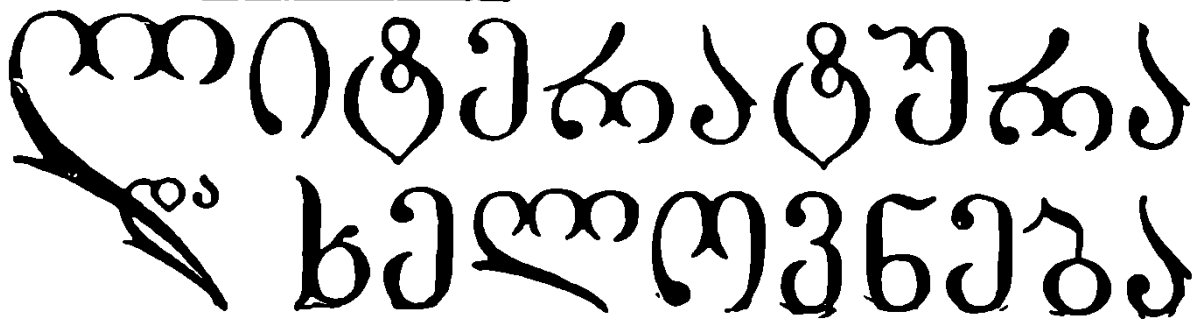 ლიტერატურა
და ხელოვნება